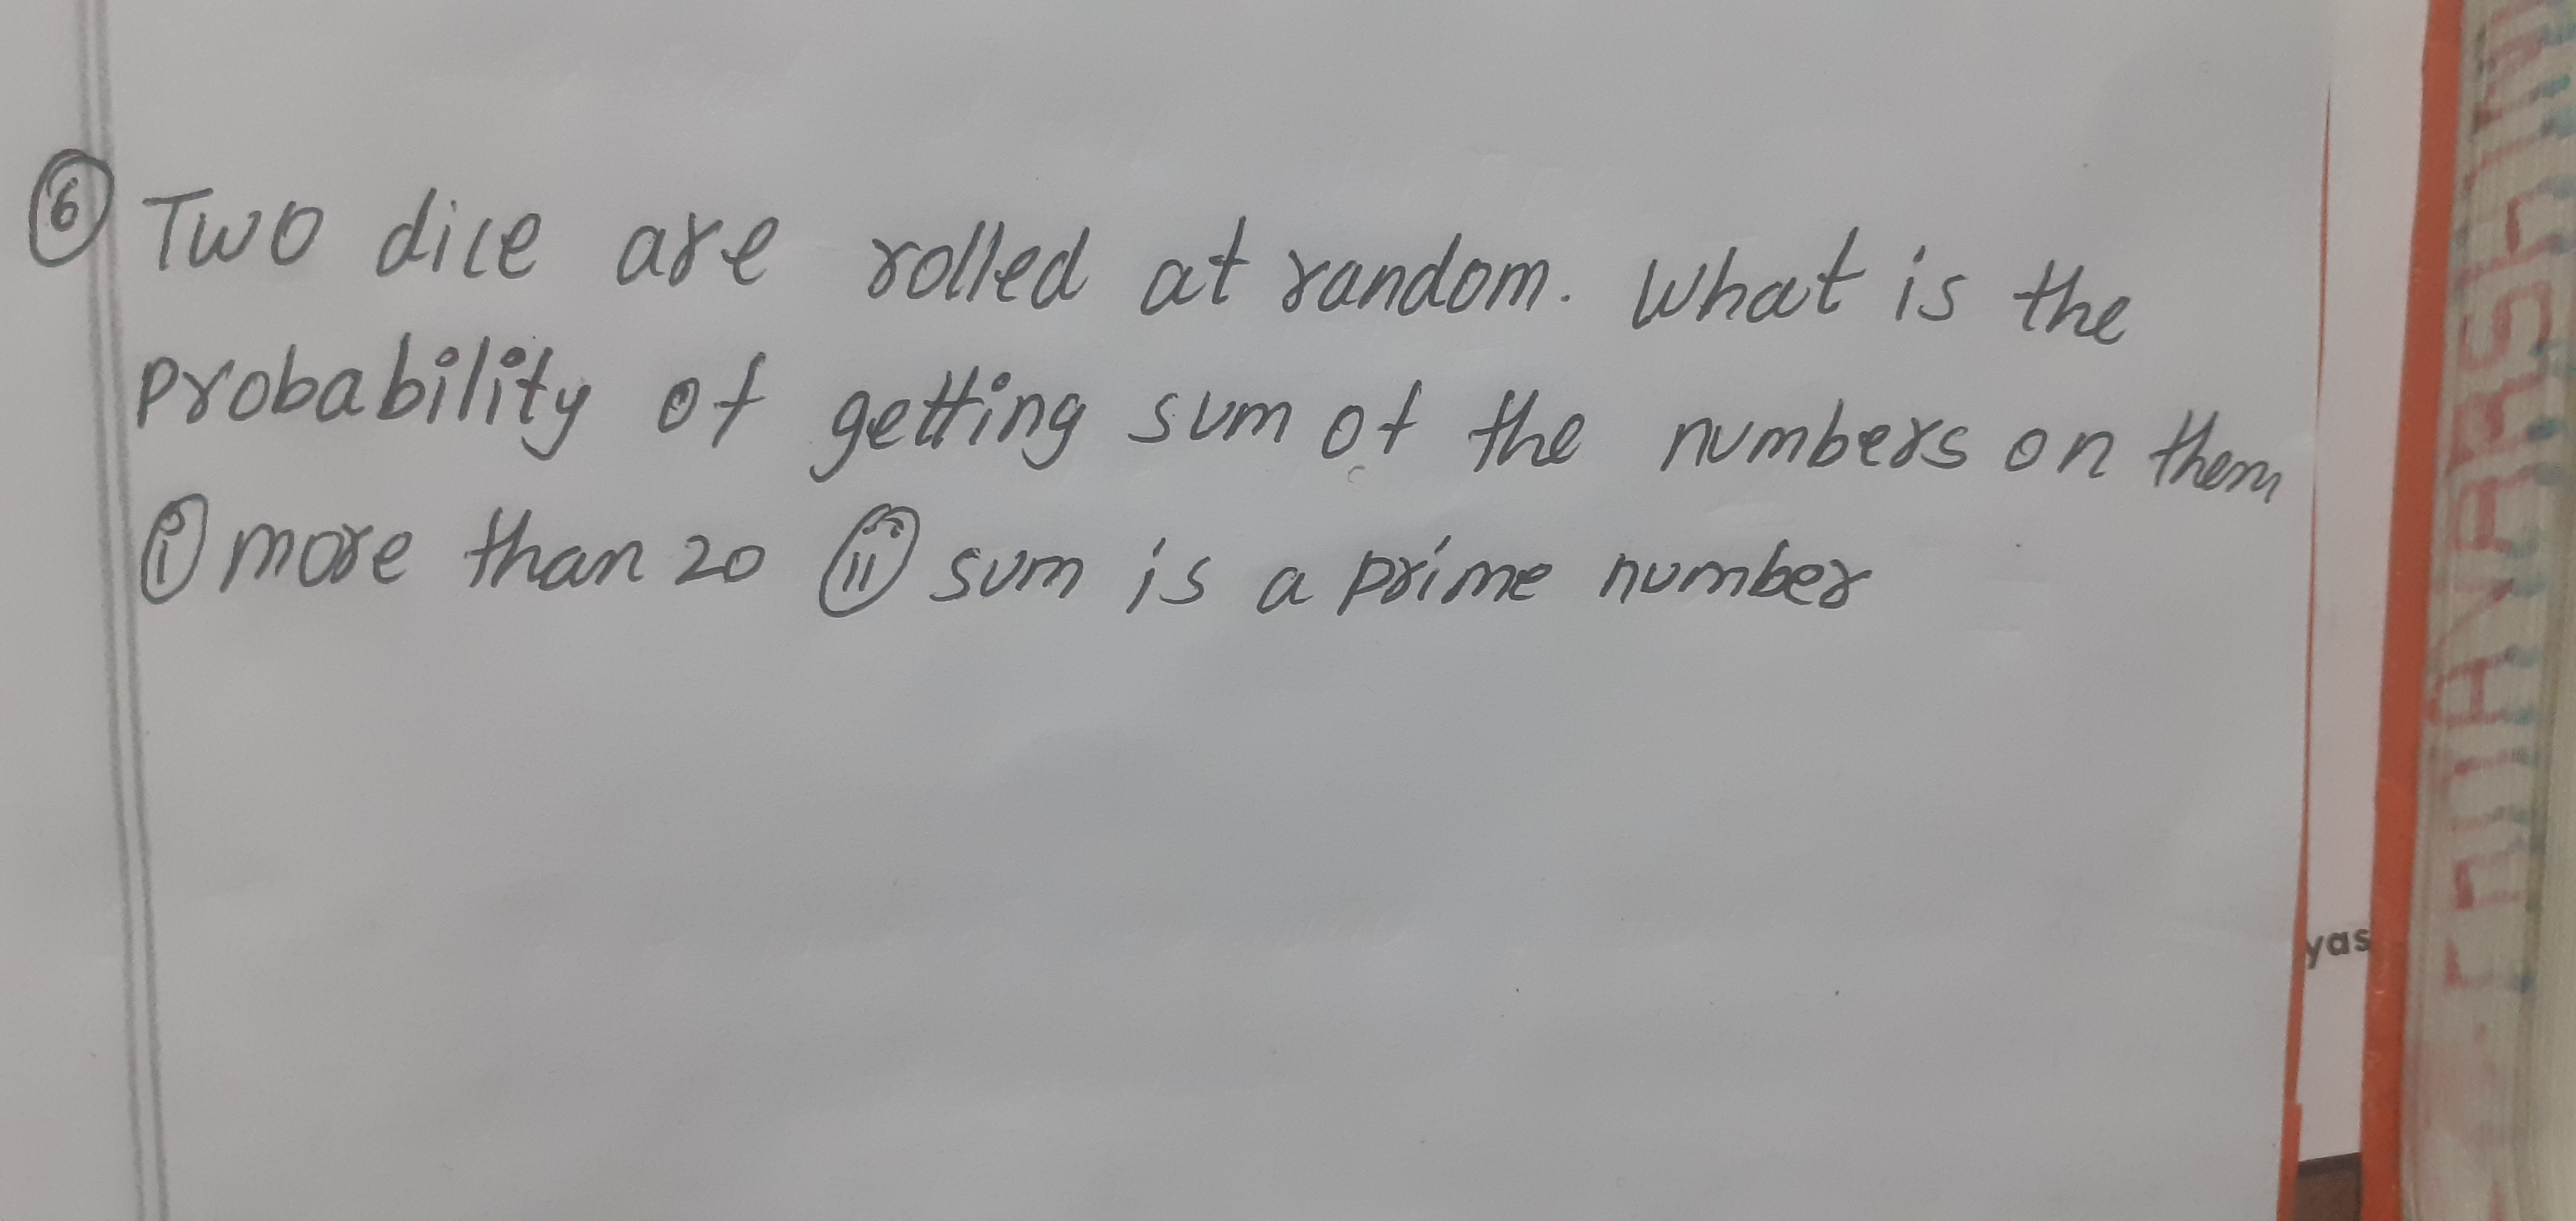 ⑥ Two dice are rolled at random. What is the
probability of getting sum of the numbers on them
ⓘ more than 20 ⓘⓘ sum is a prime number
yas